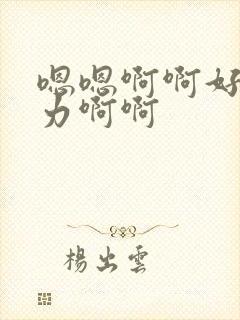 嗯嗯啊啊好
力啊啊
楊出雲